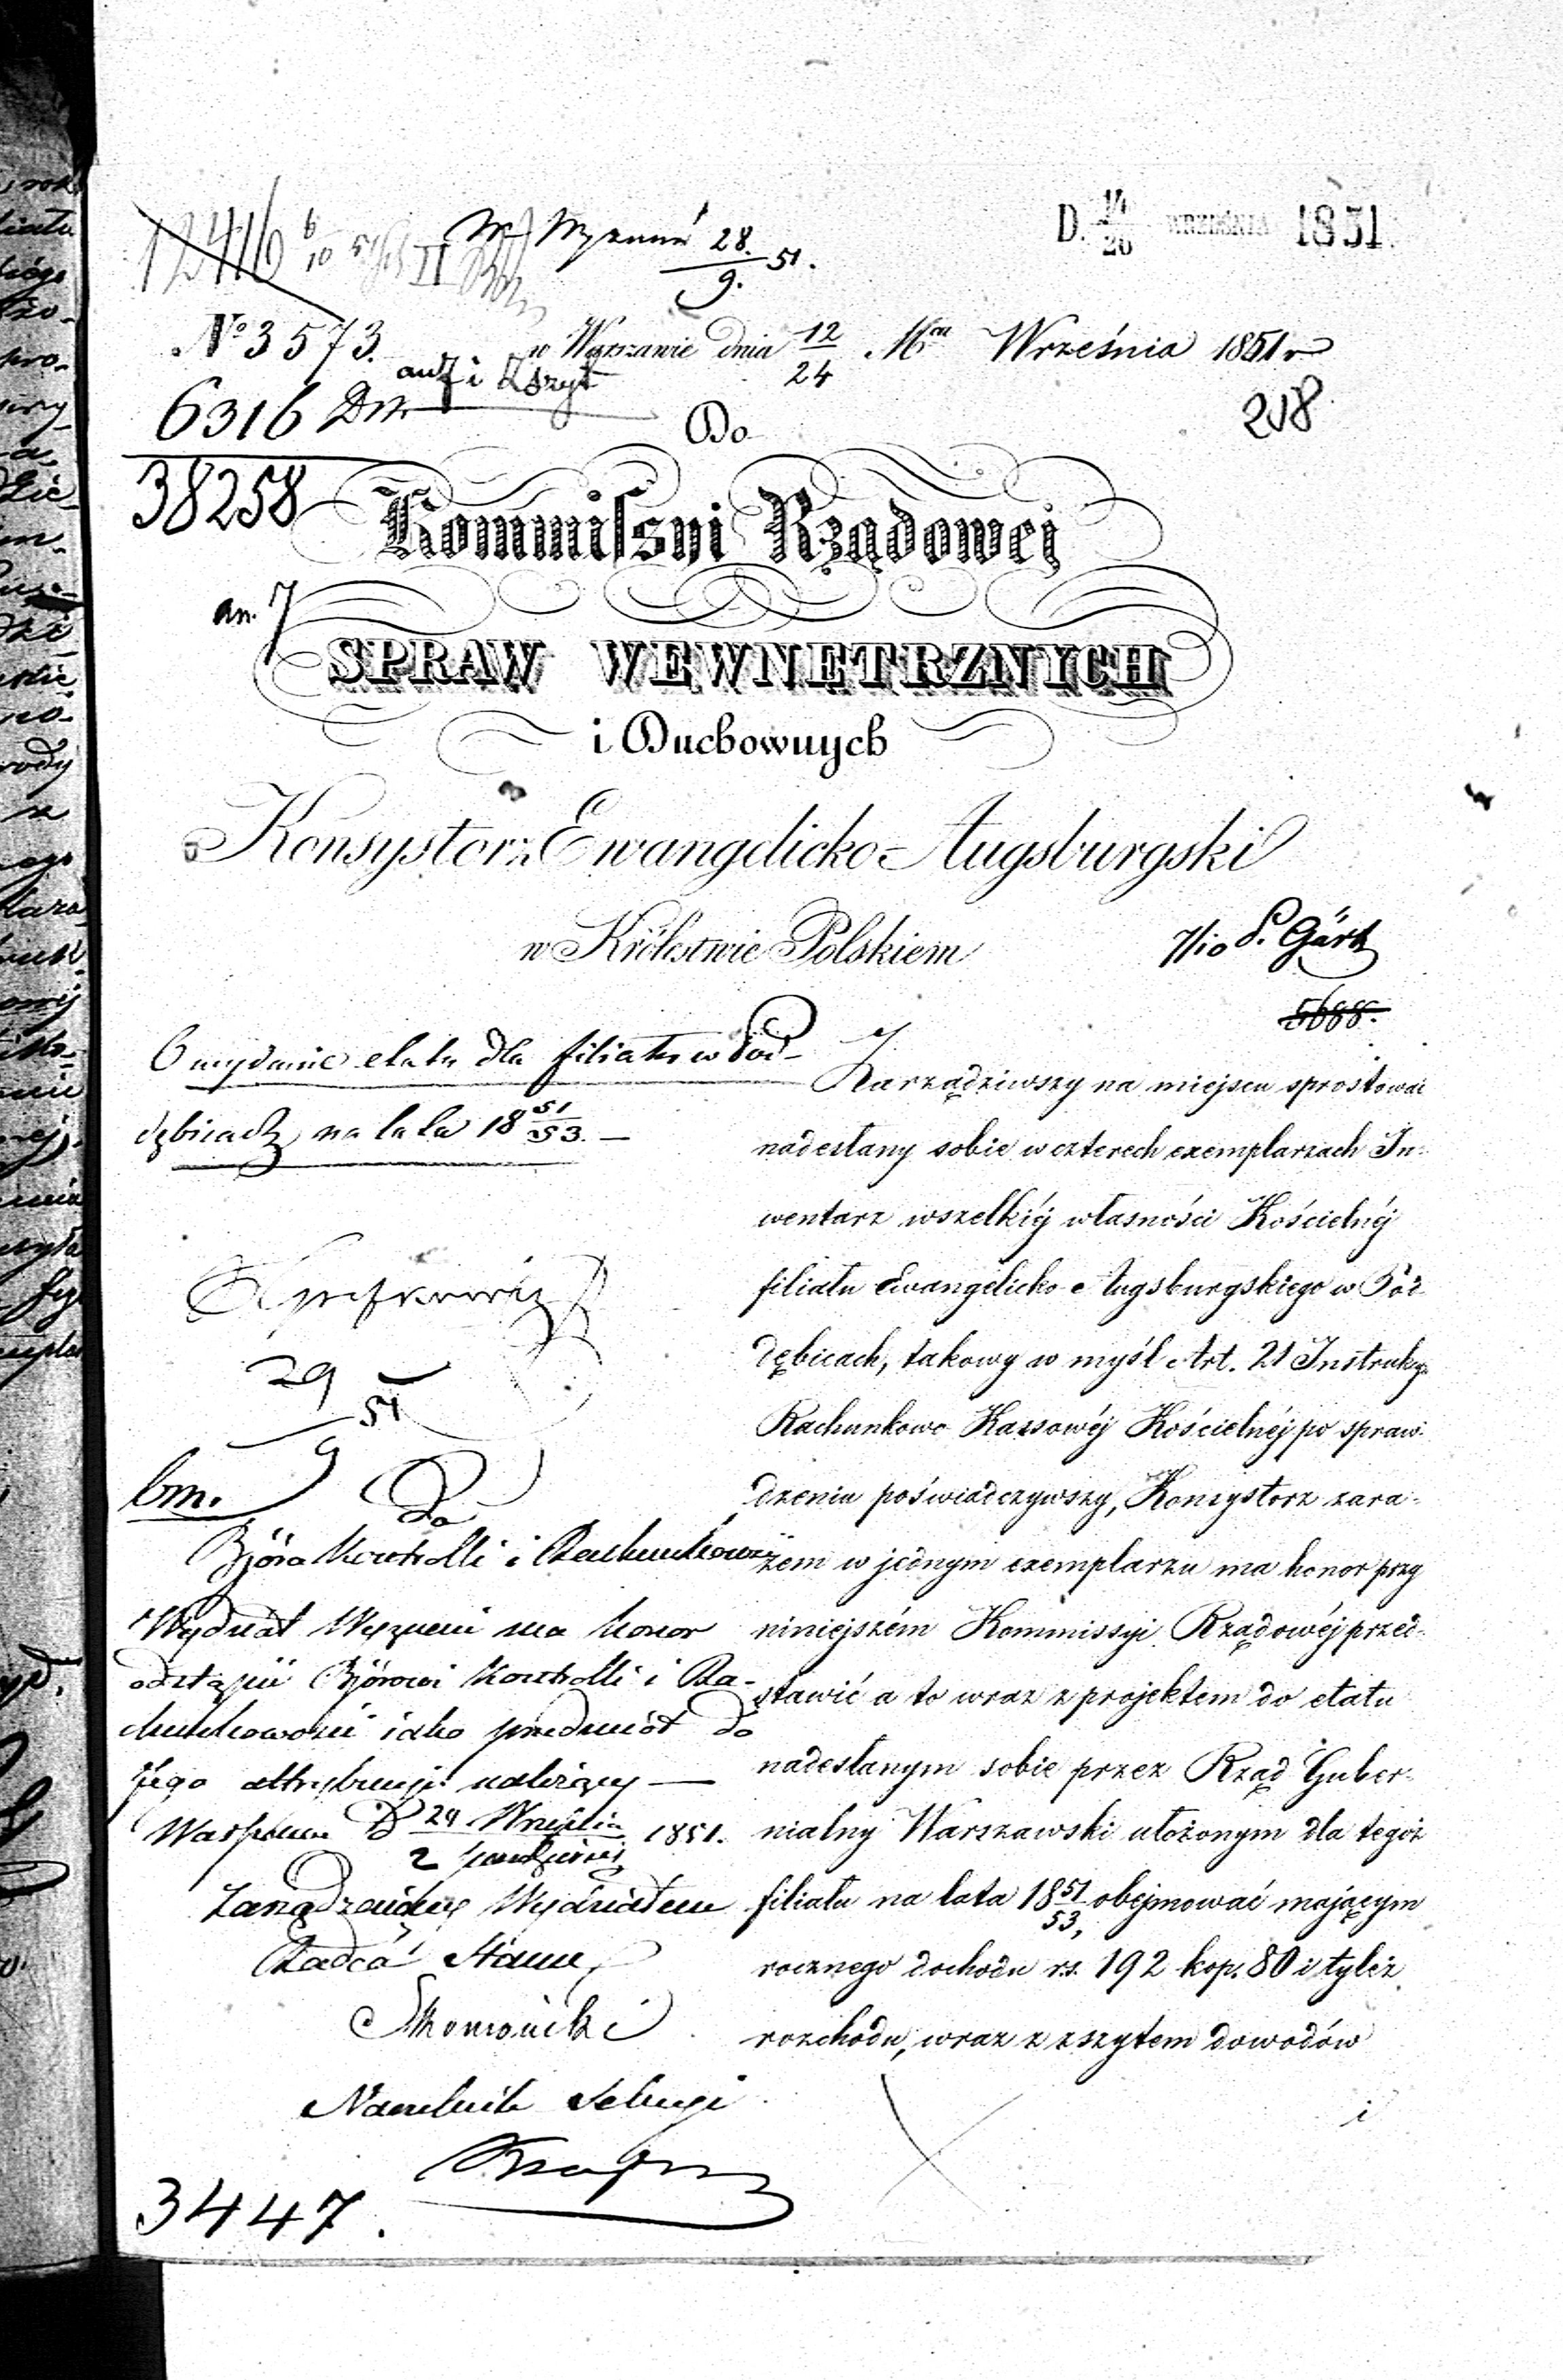 D. 14/26 WRZEŚNIA 1851.
12416 6/10 51 II
W. Wyznań 28./9. 51.
No 3573.
w Warszawie dnia 12/24 Mca Września 1851 r
6316
218
38258
Do
Kommissyi Rządowej
an. 7
SPRAW WEWNĘTRZNYCH
i Duchownych
Konsystorz Ewangelicko-Augsburgski
w Królestwie Polskiem
7/10 P. Gärt
5688.
O wydanie etatu dla filiału w Pod-
dębicach na lata 18 51/53. —
Zarządziwszy na miejscu sprostować
nadesłany sobie w czterech exemplarzach In-
wentarz wszelkiéj własności Kościelnéj
filiału Ewangelicko Augsburgskiego w Pod-
dębicach, takowy w myśl Art. 21 Instrukcyi
Rachunkowo Kassowéj Kościelnéj po spraw-
dzeniu poświadczywszy, Konsystorz zara-
zem w jednym exemplarzu ma honor przy
niniejszém Kommissyi Rządowéj przed-
stawić a to wraz z projektem do etatu
nadesłanym sobie przez Rząd Guber-
nialny Warszawski ułożonym dla tegoż
filiału na lata 18 51/53, obejmować mającym
rocznego dochodu rs. 192 kop. 80 i tyleż
rozchodu, wraz z zszytem dowodów
i
29/9 51
bm.
Do
Bióra Kontrolli i Rachunkowości
Wydział Wyznań ma honor
odstąpić Biórowi Kontrolli i Ra-
chunkowości jako przedmiot do
jego attrybucyi należący —
Warszawa D 20 Września/2 Października 1851.
Zarządzający Wydziałem
Radca Stanu
Naczelnik Sekcyi
3447.